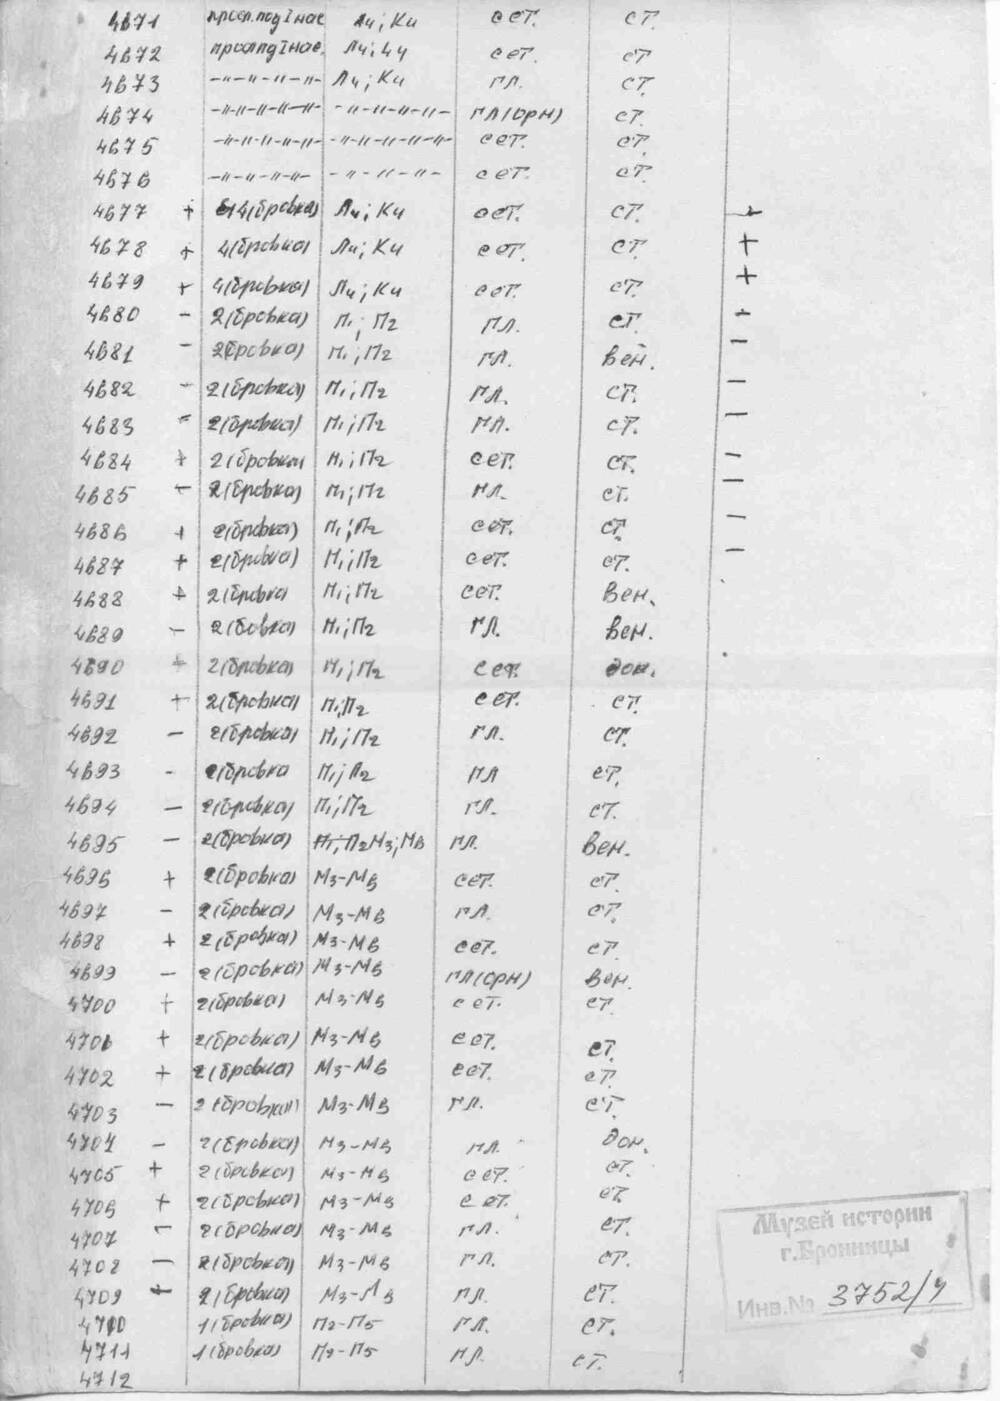 4671 просл.под I нас. Лч; Кч сет. ст.
4672 просл под I нас. Лч; Ч сет. ст
4673 -"-"-"-"- Лч; Кч гл. ст.
4674 -"-"-"-"-"- -"-"-"-"- гл(орн) ст.
4675 -"-"-"-"-"- -"-"-"-"-"- сет. ст.
4676 -"-"-"-"- -"-"-"- сет. ст.
4677 + 4(бровка) Лч; Кч сет. ст. +
4678 + 4(бровка) Лч; Кч сет. ст. +
4679 + 4(бровка) Лч; Кч сет. ст. +
4680 - 2(бровка) П1; П2 гл. ст. -
4681 - 2(бровка) П1; П2 гл. вен. -
4682 - 2(бровка) П1; П2 гл. ст. -
4683 - 2(бровка) П1; П2 гл. ст. -
4684 + 2(бровка) П1; П2 сет. ст. -
4685 - 2(бровка) П1; П2 гл. ст. -
4686 + 2(бровка) П1; П2 сет. ст. -
4687 + 2(бровка) П1; П2 сет. ст. -
4688 + 2(бровка П1; П2 сет. вен.
4689 - 2(бовка) П1; П2 гл. вен.
4690 + 2(бровка) П1; П2 сет. дон.
4691 + 2(бровка) П1; П2 сет. ст.
4692 - 2(бровка) П1; П2 гл. ст.
4693 - 2(бровка П1; П2 гл ст.
4694 - 2(бровка) П1; П2 гл. ст.
4695 - 2(бровка) П1; П2 М3; М6 гл. вен.
4696 + 2(бровка) М3-М6 сет. ст.
4697 - 2(бровка) М3-М6 гл. ст.
4698 + 2(бровка) М3-М6 сет. ст.
4699 - 2(бровка) М3-М6 гл(орн) вен.
4700 + 2(бровка) М3-М6 сет. ст.
4701 + 2(бровка) М3-М6 сет. ст.
4702 + 2(бровка) М3-М6 сет. ст.
4703 - 2(бровка) М3-М6 гл. ст.
4704 - 2(бровка) М3-М6 гл. дон.
4705 + 2(бровка) М3-М6 сет. ст.
4706 + 2(бровка) М3-М6 сет. ст.
4707 - 2(бровка) М3-М6 гл. ст.
4708 - 2(бровка) М3-М6 гл. ст.
4709 + 2(бровка) М3-М6 гл. ст.
4710 1(бровка) П2-П5 гл. ст.
4711 1(бровка) П2-П5 гл. ст.
4712
Музей истории
г.Бронницы
Инв.№ 3752/4